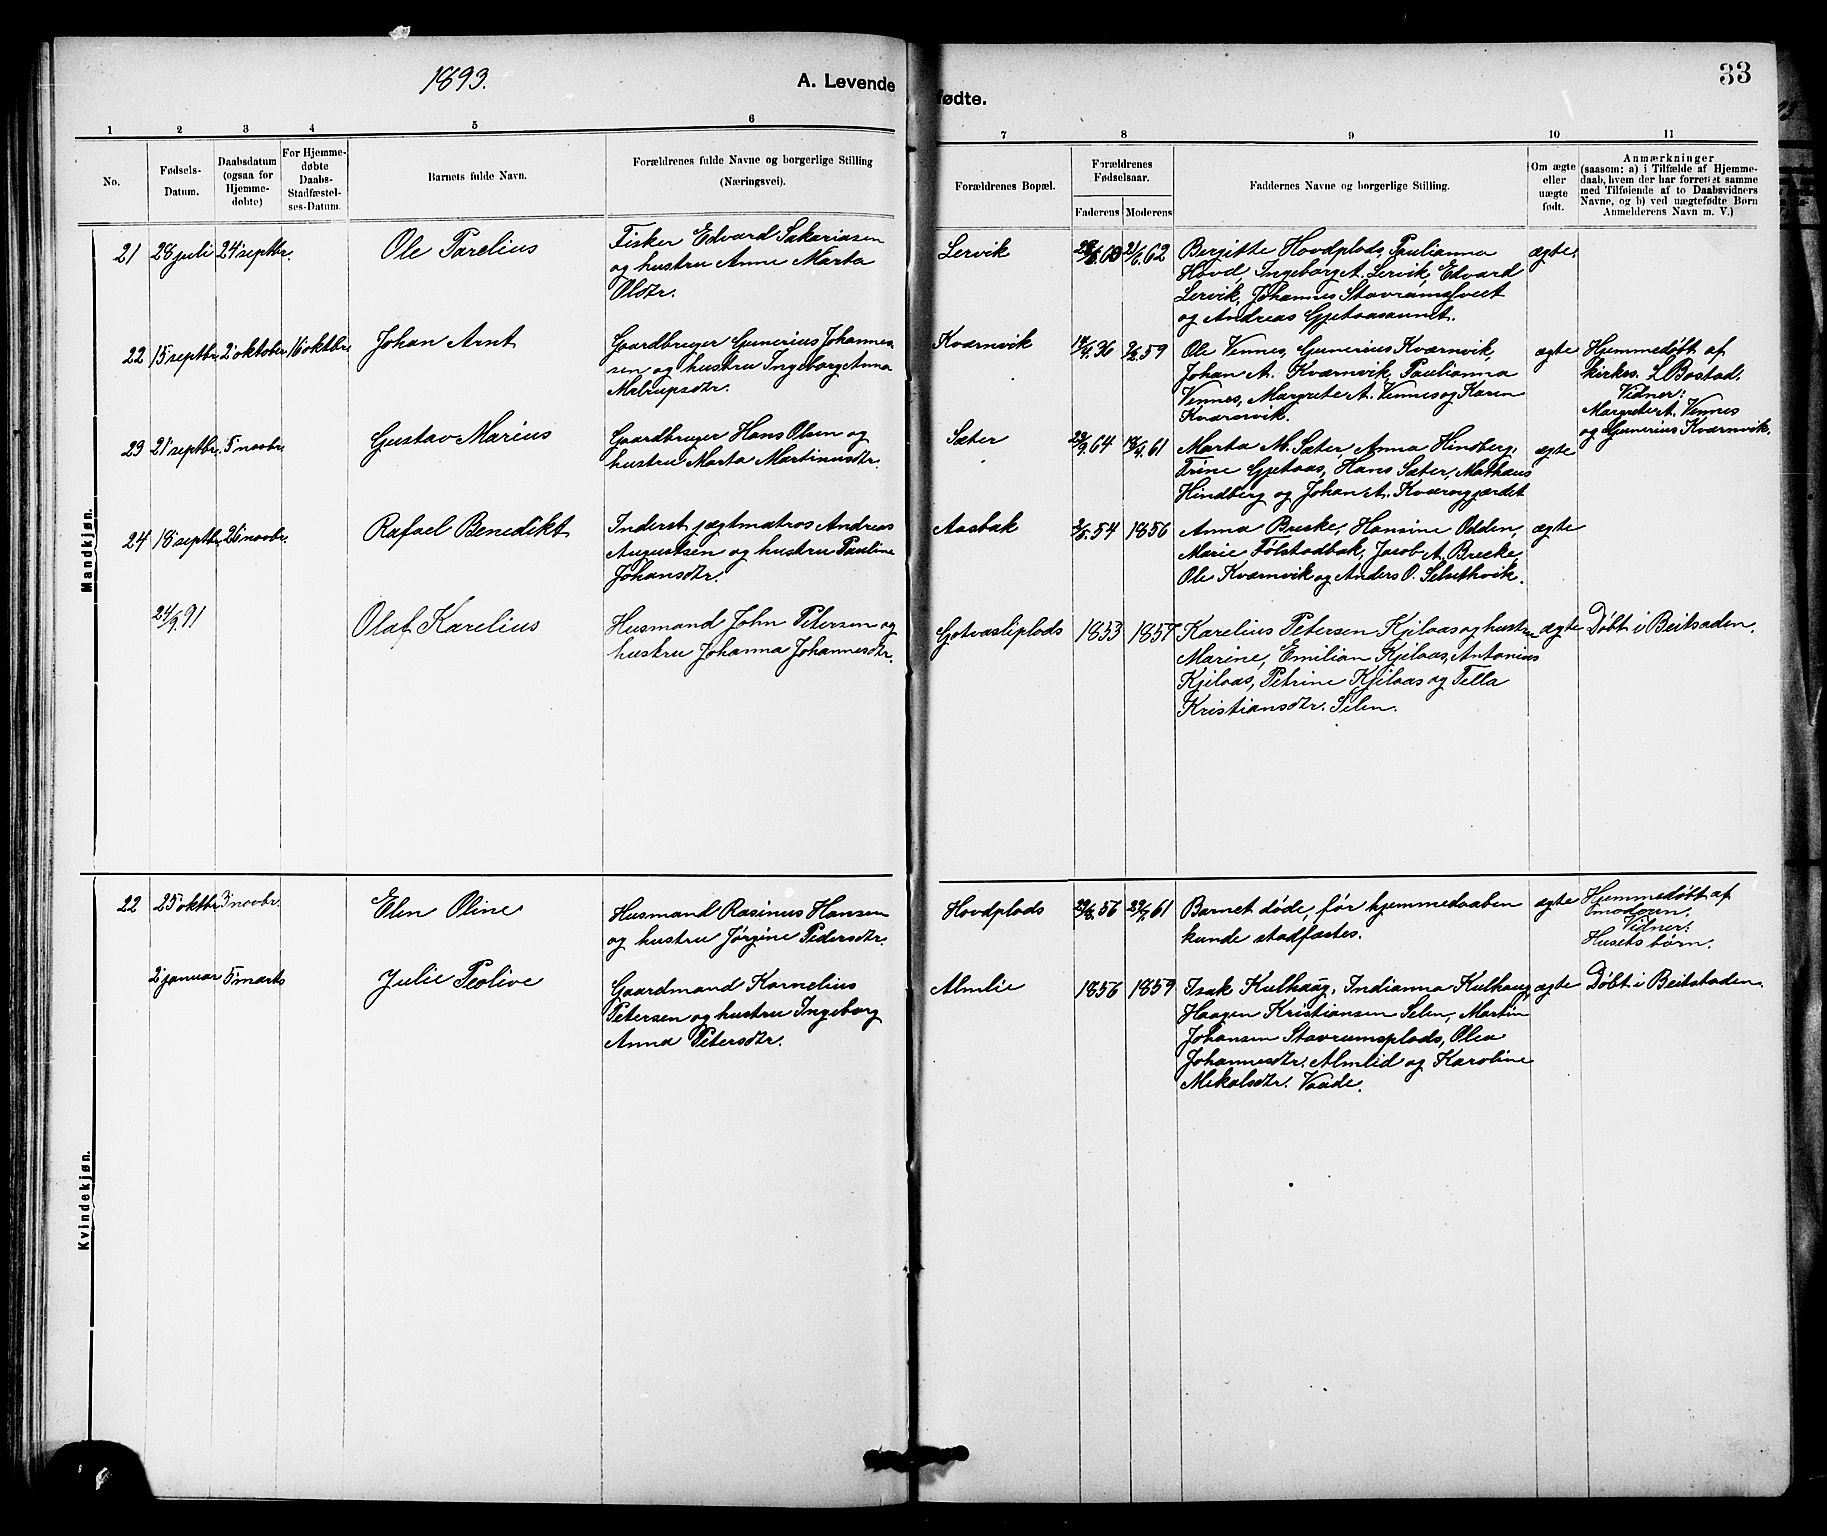 1893.
A. Levende
fødte.
33
1 2 3 4 5 6 7 8 9 10 11
No.
Fødsels-
Datum.
Daabsdatum
(ogsaa for
Hjemme-
døbte)
For Hjemme-
døbte
Daabs-
Stadfæstel-
ses-Datum.
Barnets fulde Navn.
Forældrenes fulde Navne og borgerlige Stilling
(Næringsvei).
Forældrenes Bopæl.
Forældrenes
Fødselsaar.
Faderens Moderens
Faddernes Navne og borgerlige Stilling.
Om ægte
eller
uægte
født.
Anmærkninger
(saasom: a) i Tilfælde af Hjemme-
daab, hvem der har forrettet samme
med Tilføiende af to Daabsvidners
Navne, og b) ved uægtefødte Børn
Anmelderens Navn m. V.)
Mandkjøn.
21 28 juli 24 septbr. Ole Parelius
Fisker Edvard Sakariasen
og hustru Anne Marta
Olsdtr.
Lervik
62
Bergitte Hovdplads, Paulianna
Hovd, Ingeborg A. Lervik, Edvard
Lervik, Johannes Stavrumsfveet
og Andreas Gjetaasaunet.
ægte.
22 15 septbr. 2 oktober 16 oktbr. Johan Arnt
Gaardbruger Gunerius Johannes
sen og hustru Ingeborg Anna
Matrupsdtr.
Kværnvik
14/4.36 2/2.59
Ole Vennes, Gunerius Kværnvik,
Johan A. Kværnvik, Paulianna
Vennes, Margrete A. Vennes og Karen
Kværnvik.
ægte
Hjemmedøbt af
kirkes. L. Bostad.
Vidner:
Margrete A. Vennes
og Gunerius Kværnvik.
23 21 septbr. 5 novbr. Gustav Marius
Gaardbruger Hans Olsen og
hustru Marta Martinusdtr.
Sæter
29/9.64 61
Marta M. Sæter, Anna Hindberg,
Trine Gjetaas, Hans Sæter, Mathæus
Hindberg og Johan A. Kværngjærdet
ægte
24 18 septbr. 26 novbr. Rafael Benedikt
Inderst jægtmatros Andreas
Augustsen og hustru Pauline
Johansdtr.
Aasbak
2/5.54 1856
Anna Breske, Hansine Odden,
Marie Følstadbak, Jacob A. Breske,
Ole Kværnvik og Anders O. Selsethvik.
ægte
24/9.91
Olaf Karelius
Husmand John Petersen og
hustru Johanna Johannesdtr.
Gotvasliplads
1853 1857
Karelius Petersen Kjilaas og hustru
Marine, Emilian Kjilaas, Antonius
Kjilaas, Petrine Kjilaas og Tella
Kristiansdtr. Selen.
ægte
Døbt i Beitstaden.
Kvindekjøn.
22 25 oktbr. 3 novbr. Elen Oline
Husmand Rasinus Hansen
og hustru Jørgine Pedersdtr.
Hovdplads
29/8.56 29/7.61
Barnet døde, før hjemmedaaben
kunde stadfæstes.
ægte
Hjemmedøbt af
moderen.
Vidner:
Husets børn.
2 januar 5 marts Julie Peolive
Gaardmand Kornelius
Petersen og hustru Ingeborg
Anna Petersdtr.
Almlie
1856 1859
Isak Kulhaug, Indianna Kulhaug,
Haagen Kristiansen Selen, Martin
Johansen Stavrumsplads, Olea
Johannesdtr. Almlid og Karoline
Mekalsdtr. Vaade.
ægte
Døbt i Beitstaden.